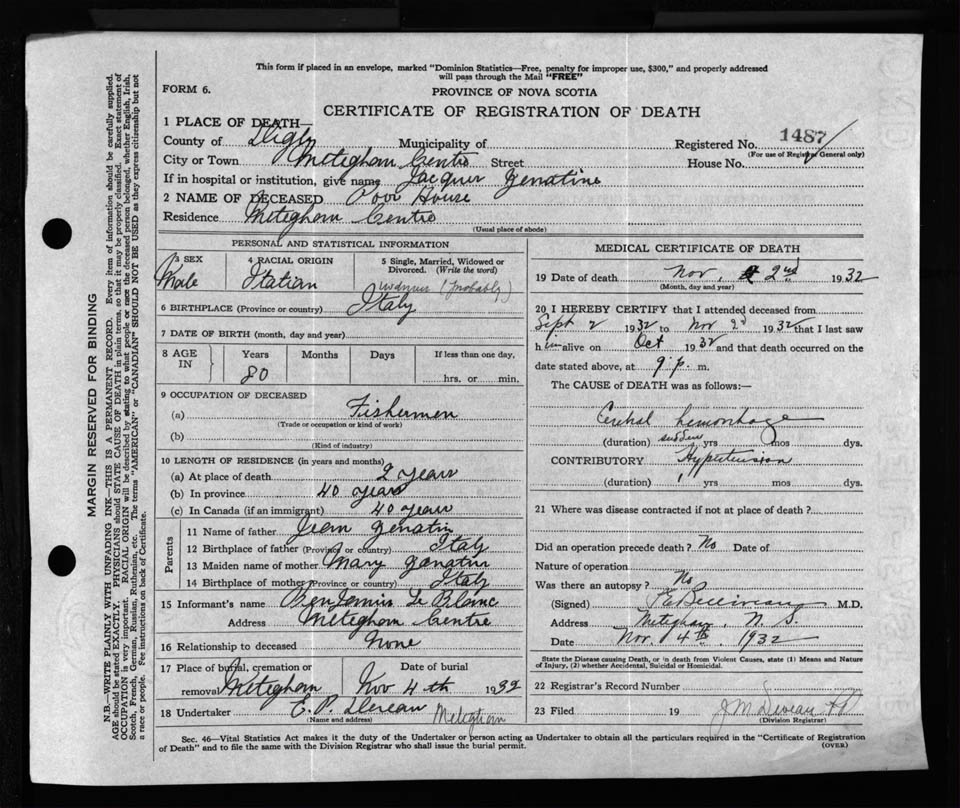 This form if placed in an envelope, marked "Dominion Statistics—Free, penalty for improper use, $300," and properly addressed
will pass through the Mail "FREE"
FORM 6.
PROVINCE OF NOVA SCOTIA
CERTIFICATE OF REGISTRATION OF DEATH
1 PLACE OF DEATH—
County of Digby Municipality of Registered No. 1487
(For use of Registrar General only)
City or Town Meteghan Centre Street House No.
If in hospital or institution, give name Jacques Genatine
2 NAME OF DECEASED Poor House
Residence Meteghan Centre
(Usual place of abode)
PERSONAL AND STATISTICAL INFORMATION
3 SEX 4 RACIAL ORIGIN 5 Single, Married, Widowed or
Divorced. (Write the word)
Male Italian (probably)
6 BIRTHPLACE (Province or country) Italy
7 DATE OF BIRTH (month, day and year)
8 AGE IN Years Months Days If less than one day,
80 hrs. or min.
9 OCCUPATION OF DECEASED
(a) Fishermen
(Trade or occupation or kind of work)
(b)
(Kind of industry)
10 LENGTH OF RESIDENCE (in years and months)
(a) At place of death 2 years
(b) In province 40 years
(c) In Canada (if an immigrant) 40 years
Parents
11 Name of father Jean Genatin
12 Birthplace of father (Province or country) Italy
13 Maiden name of mother Mary Genatin
14 Birthplace of mother (Province or country) Italy
15 Informant's name Benjamin Le Blanc
Address Meteghan Centre
16 Relationship to deceased None
17 Place of burial, cremation or Date of burial
removal Meteghan Nov 4th 1932
18 Undertaker E. P. Deveau Meteghan
(Name and address)
MEDICAL CERTIFICATE OF DEATH
19 Date of death Nov. 2nd 1932
(Month, day and year)
20 I HEREBY CERTIFY that I attended deceased from
Sept 2 1932 to Nov 2d 1932 that I last saw
him alive on Oct 1932 and that death occurred on the
date stated above, at 9 p. m.
The CAUSE OF DEATH was as follows:—
Cerebral hemorrhage
(duration) sudden yrs mos dys.
CONTRIBUTORY Hypertension
(duration) yrs. mos. dys.
21 Where was disease contracted if not at place of death?
Did an operation precede death? No Date of
Nature of operation
Was there an autopsy? No
(Signed) M.D.
Address Meteghan, N. S.
Date Nov. 4th 1932
State the Disease causing Death, or in death from Violent Causes, state (1) Means and Nature
of Injury, (2) whether Accidental, Suicidal or Homicidal.
22 Registrar's Record Number
23 Filed 19 J M Deveau
(Division Registrar)
Sec. 46—Vital Statistics Act makes it the duty of the Undertaker or person acting as Undertaker to obtain all the particulars required in the "Certificate of Registration
of Death" and to file the same with the Division Registrar who shall issue the burial permit.
(OVER)
MARGIN RESERVED FOR BINDING
N.B.—WRITE PLAINLY WITH UNFADING INK—THIS IS A PERMANENT RECORD. Every item of information should be carefully supplied.
AGE should be stated EXACTLY. PHYSICIANS should STATE CAUSE OF DEATH in plain terms, so that it may be properly classified. Exact statement of
OCCUPATION is very important. RACIAL ORIGIN will be described by stating to what people or race the deceased person belonged, whether English, Irish,
Scotch, French, German, Russian, Ruthenian, etc. The terms "AMERICAN" or "CANADIAN" SHOULD NOT BE USED as they express citizenship but not
a race or people. Fee instructions on back of Certificate.